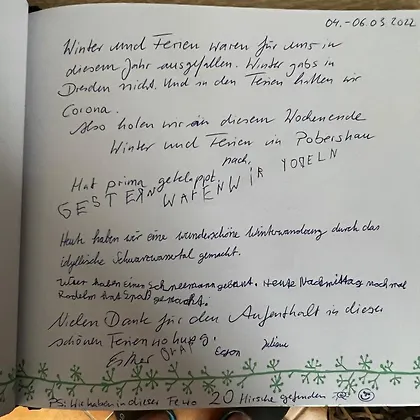 04.-06.03.2022
Winter und Ferien waren für uns in
diesem Jahr ausgefallen. Winter gabs in
Dresden nicht. Und in den Ferien hatten wir
Corona.
Also holen wir an diesem Wochenende
Winter und Ferien in Pobershau
nach.
Hat prima geklappt.
GESTERN WAREN WIR RODELN
Heute haben wir eine wunderschöne Winterwanderung durch das
idyllische Schwarzwassertal gemacht.
Wier haben einen Schneemann gebaut. Heute Nachmittag nochmal
Rodeln hat Spaß gemacht.
Vielen Dank für den Aufenthalt in dieser
schönen Ferienwohnung.
Esther
Juliane
PS: Wir haben in dieser Fewo 20 Hirsche gefunden